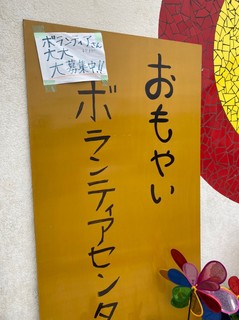 ボランティアさん
大大
大募集中!!
おもやい
ボランティアセンタ